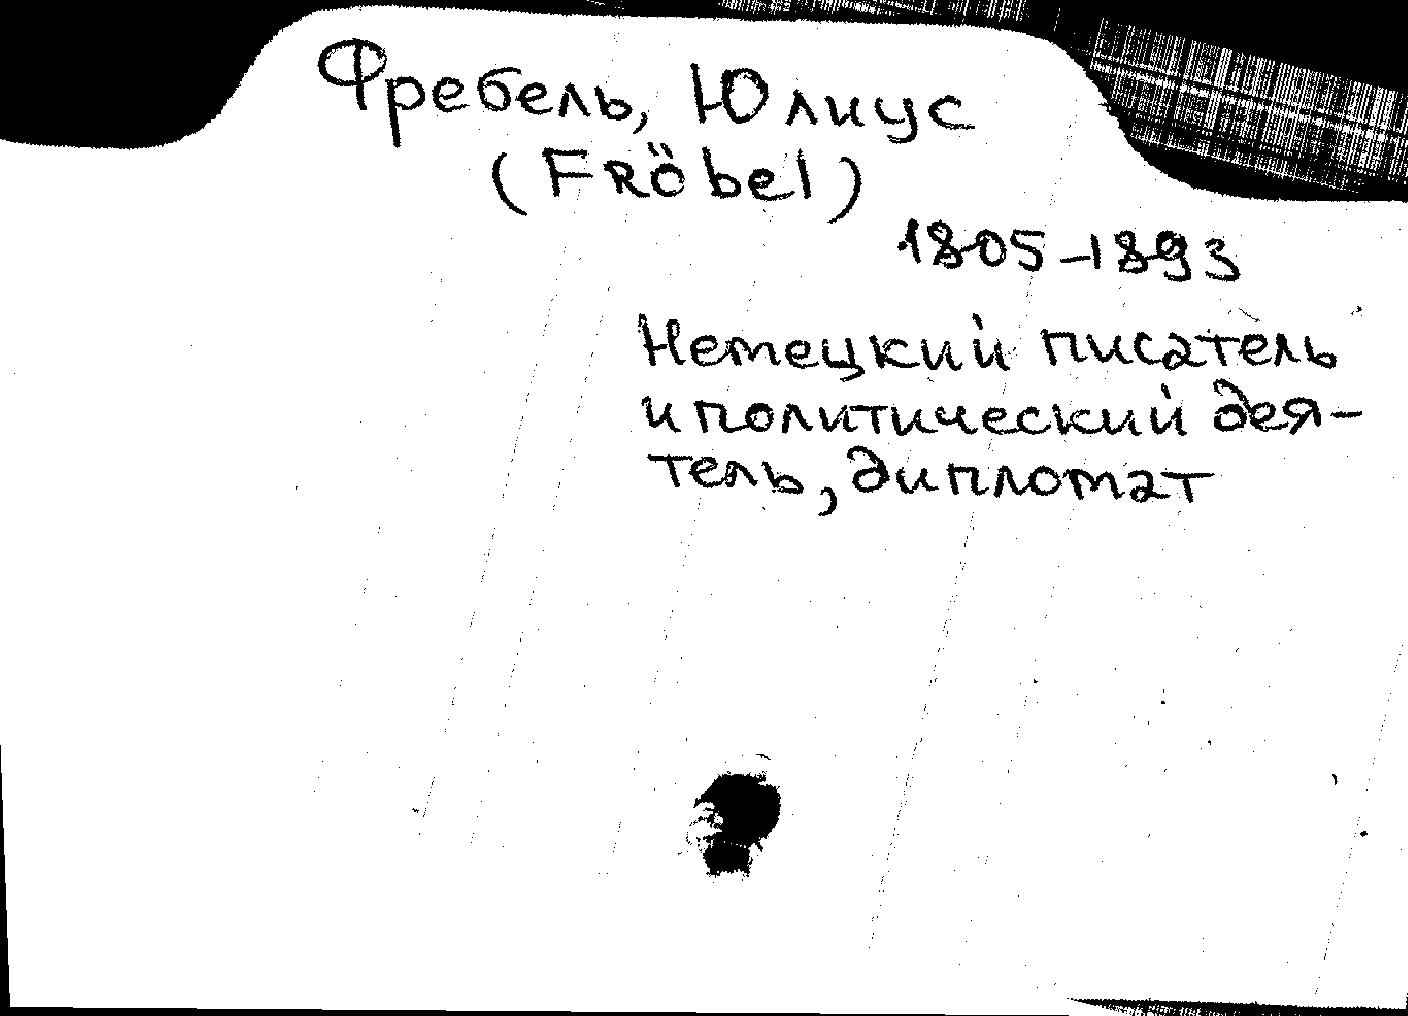 Фребель, Юлиус
(Fröbel)
1805-1893
Немецкий писатель
и политический дея-
тель, дипломат